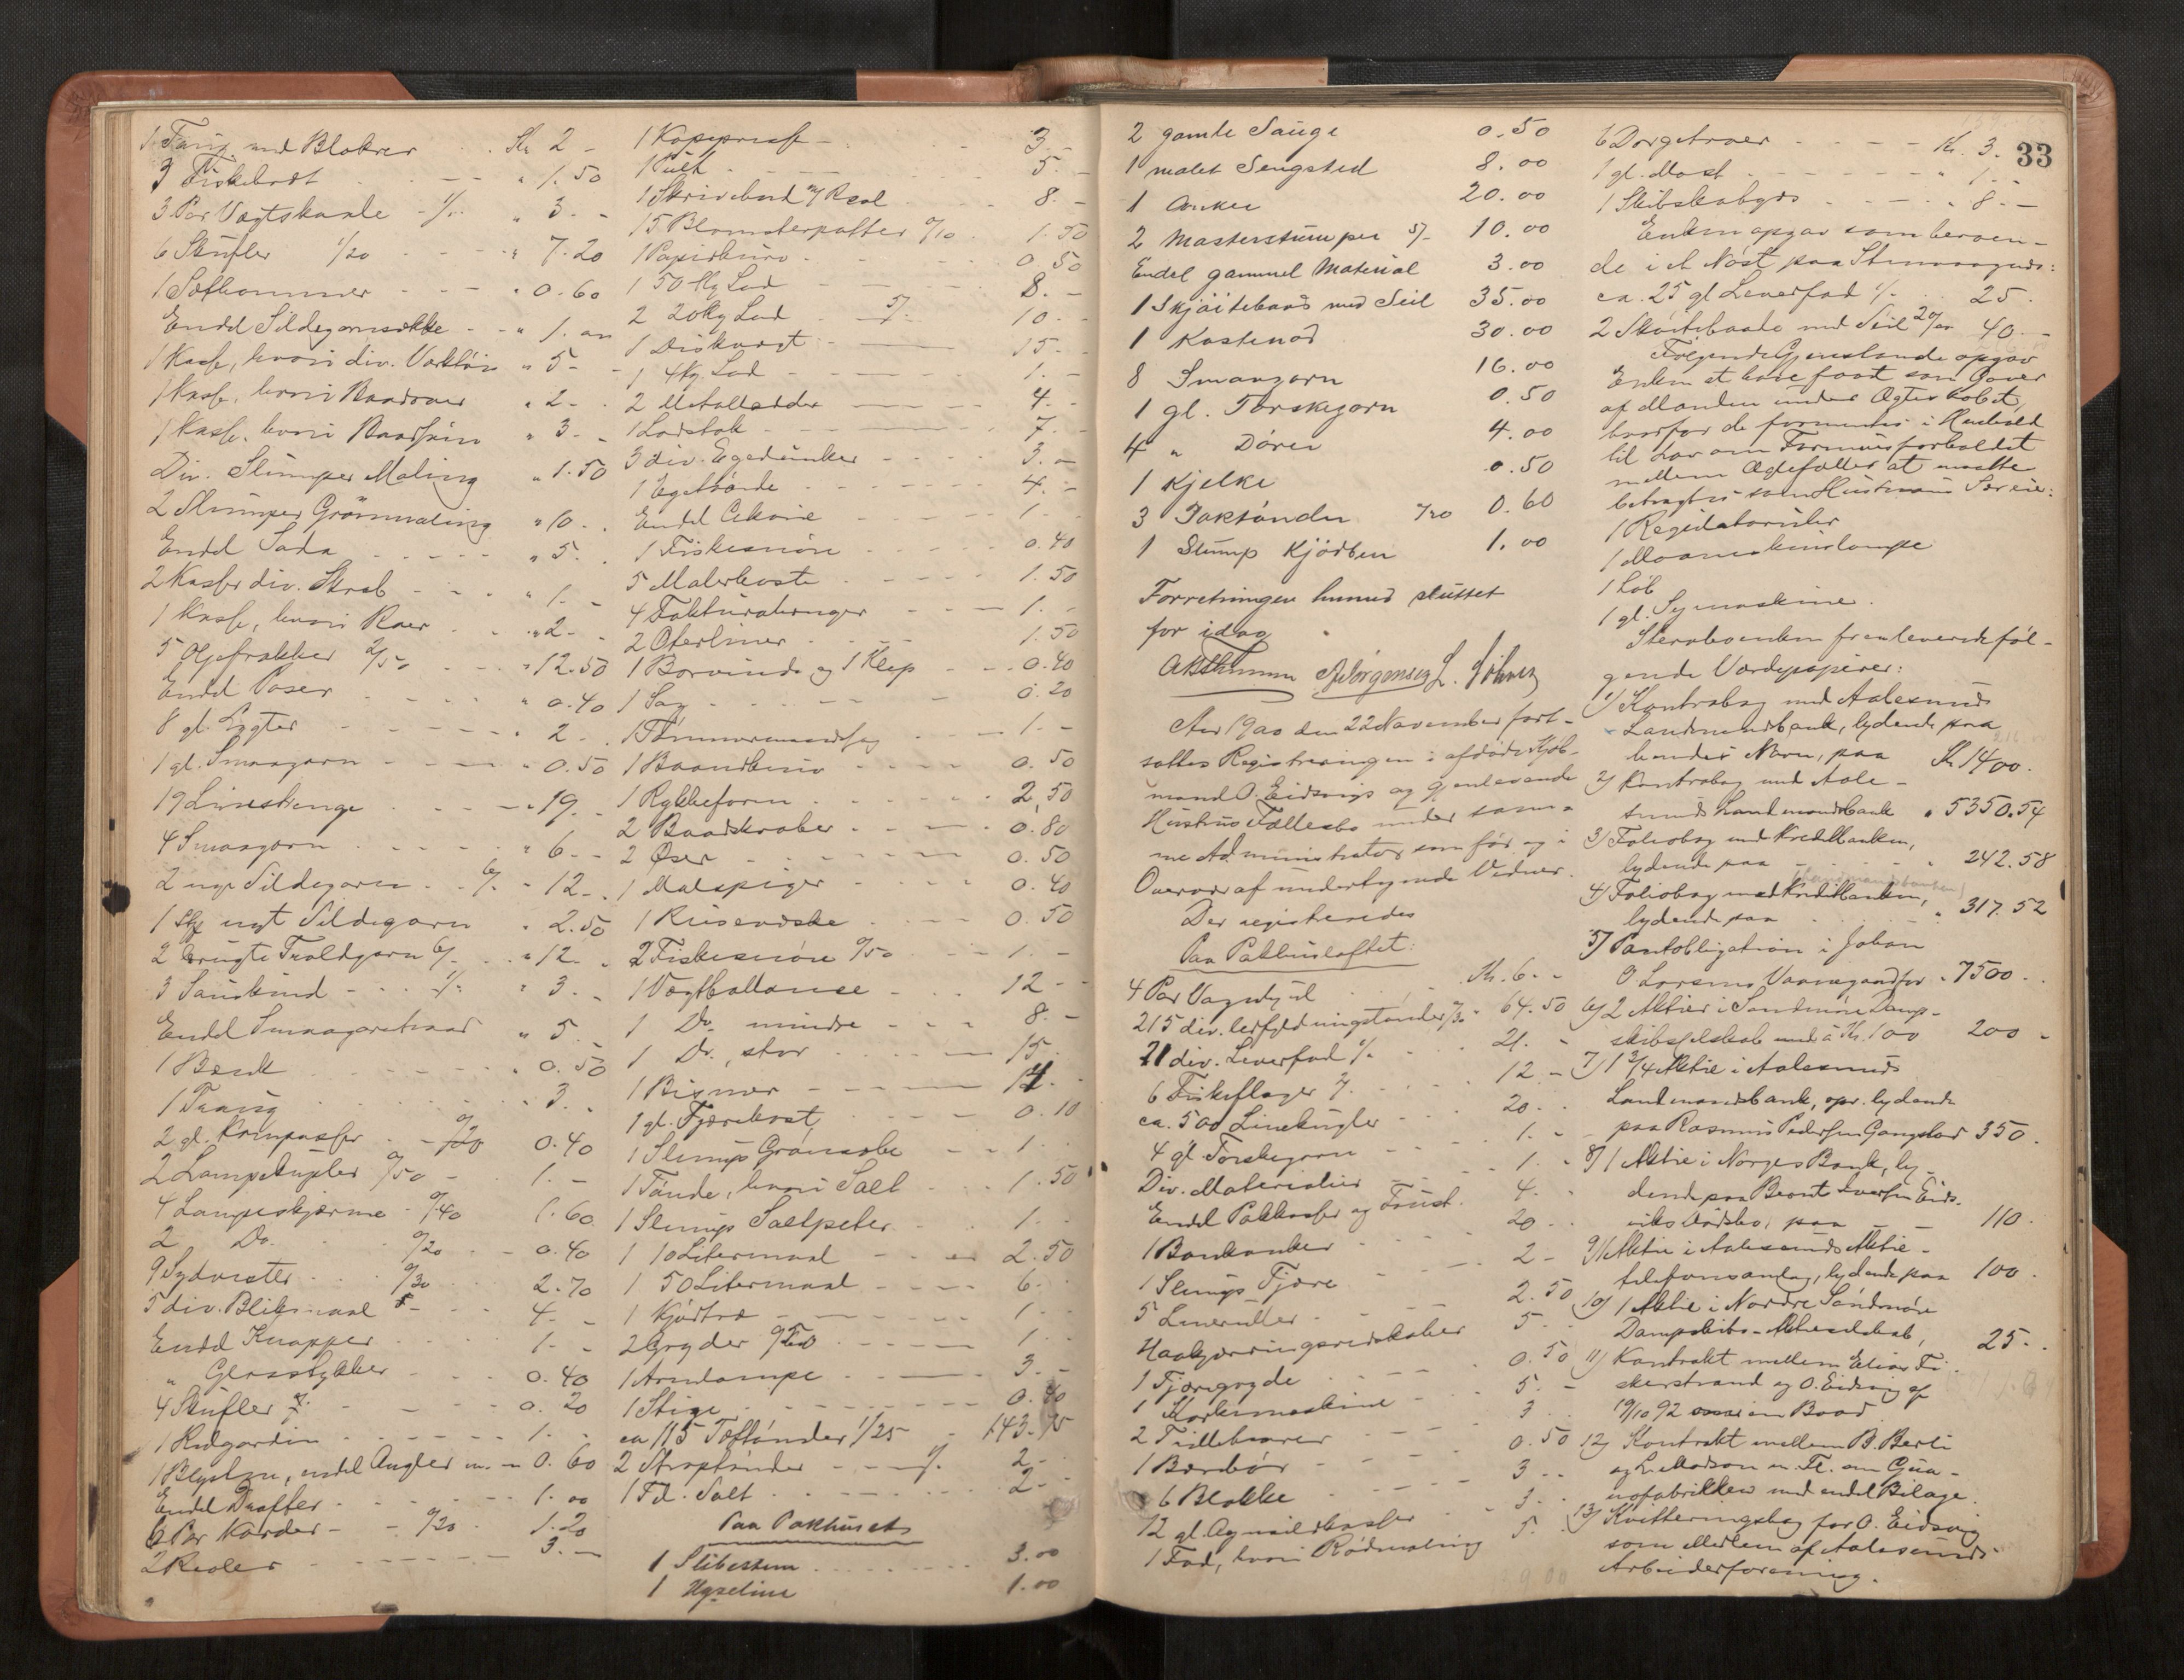 1 Taug med Blokker . . Kr. 2 -
3 Fiskebræt . . - - " 1.50
3 Par Vægtskaale - 1/- " 3. -
6 Skufler 1/20 - - - " 7.20
1 Sæthammer - - - " 0.60
Endel Sildegarnsække - - " 1.00
1 Kasse, hvori div. Værktøi " 5 - -
1 Kasse, hvori Baadroer " 2 - .
1 Kasse, hvori Baadsøm " 3. -
Div. Slumper Maling " 1.50
2 Slumper Grønmaling " 10 - .
Endel Soda - - - - " 5. .
2 Kasser div. Skrab - - " 1. -
1 Kasse, hvori Roer . . " 2 - .
5 Oljefrakker 2/50 - - - " 12.50
Endel Poser - - - " 0.40
8 gl. Lygter - - - - " 2 - .
1 gl. Smaagarn - - - " 0.50
19 Linestrenge - - - " 19. -
4 Smaagarn - - - - " 6 - -
2 nye Sildegarn . . 6/- " 12 - .
1 Stk nyt Sildegarn " 2.50
2 brugte Troldgarn 6/- . . " 12 - .
3 Saueskind - - - 1/- " 3. -
Endel Smaagarstraad " 5 -
1 Bænk - - - - . 0.50
1 Traug . . . . . 3. -
2 gl. Kompasser - - 0/20 0.40
2 Lampekupler 0/50 - - 1. -
4 Lampeskjærme - 0/40 1.60
2 Do. . . 0/20 - - 0.40
9 Sydvester . . 0/30 2.70
5 div. Blikmaal - - 4. -
Endel Knapper . . . 1. -
" Glasstykker - - - 0.40
4 Skufler - - - 0.20
1 Rulgardin - - - - 1. -
1 Blysten, endel Angler m. - 0.60
Endel Drafter - - - - 1.00
6 Par Karder - - 0/20 - 1.20
2 Reoler - - - - - 3. -
1 Kopipresse - - - 3. -
1 Pult - - - 5. -
1 Skrivebord m/ Reol . . 8. -
15 Blomsterpotter 0/10 . 1.50
1 Papirkurv - - - 0.50
1 50 Kg Lod - - - 8. -
2 20 Kg Lod - 5/- 10. -
1 Diskvægt - - - 15. -
1 4 Kg. Lod - - - 1. -
2 Metallodder - - 4. -
1 Lodstok - - - 7. -
3 div. Egedunker - - - 3. -
1 Egetønde - - - 4. -
Endel Cikorie - - - 1. -
1 Fiskesnøre - - - 0.40
5 Malerkoste - - - 1.50
4 Fakturabunger - - - 1. -
2 Oterliner - - - 1.50
1 Borvinde og 1 Klep - - - 0.40
1 Sag - - - - 0.20
1 Tømmermandssag - - 1. -
1 Baandkniv - - - 0.50
1 Rykkeform - - - 2,50
2 Baadskraber - - - 0.80
2 Øser - - - - 0.50
1 Malspiger - - - 0.40
1 Kruseveske - - - 0.50
2 Fiskesnøre 0/50 - - 1. -
1 Vægtballanse - - - 12 - -
1 Do. mindre - - - 8. -
1 Do., stor - - - 15.
1 Bismer - - - 14. -
1 gl. Fjærekost, - - 0.10
1 Slump Grønsæbe - - 1. -
1 Tønde, hvori Salt . . 1.50
1 Slump Saltpeter - - 1. -
1 10 Litermaal - - - 2.50
1 50 Litermaal - - - 6. -
1 Kjørtræ - - - 1. -
2 Gryder 0/50 - - - 1. -
1 Armlampe - - - 3. -
1 Stige - - - - 0.40
ca 115 Toftønder 1/25 - 143.75
2 Straptønder - - 1/- 2. -
1 Fd. Salt - - - - 2. -
Paa Pakhuset.
1 Slibesten . . . . . 3.00
1 Hyseline 1.00
2 gamle Sauge 0.50
1 malet Sengsted 8.00
1 Anker 20.00
2 Masterstumper 5/- 10.00
Endel gammel Material 3.00
1 Skjøitebaad med Seil 35.00
1 Kastenod 30.00
8 Smaagarn 16.00
1 gl. Torskegarn 0.50
4 " Dører 4.00
1 Kjelke 0.50
3 Taktønder 0/20 0.60
1 Stump Kjødben 1.00
Forretningen hermed sluttet
for idag
N Jørgensen L. Søhner
Aar 1900 den 22 November fort-
sattes Registreringen i afdøde Kjøb-
mand O. Eidsvigs og gjenlevende
Hustrus Fællesbo under sam-
me Administrator som før og i
Overvær af undertegnede Vidner.
Der registreredes
Paa Pakhusloftet:
4 Par Vognhjul . . . Kr. 6. -
215 div. Istfyldningstønder 0/30 " 64.50
21 div. Leverfad 1/- - - 21. -
6 Fiskeflager 2/- . . . 12 -
ca. 500 Linekugler - - 20. -
4 gl. Torskegarn - - 1. -
Div. Materialier - - - 1. -
Endel Pakkasser og Foust. 4. -
1 Bankanker - - - 20 - .
1 Slump Tjære - - - 2 -
5 Lineruller - - - 2.50
Haakjærringsredskaber 5 - .
1 Tjæregryde - - - 0.50
1 Korkemaskine - - - 5. -
2 Tællebærer - - - 3 .
1 Bærebør - - - 0.50
6 Blokke - - - 3 - -
12 gl. Agnsildkasser - - 3. -
1 Fad, hvori Rødmaling 5. .
33
6 Dorgetroer - - - - Kr. 3.
1 gl. Mast - - - - " 1. -
1 Skibskabys - - - - " 8. -
Enken opgav som beroen-
de i et Nøst paa Stornæsgrund:
ca. 25 gl Leverfad 1/- . . 25 .
2 Skøitebaade med Seil 20/00 40. -
Følgende Gjenstande opgav
Enken at have faaet som Gaver
af Manden under Ægteskabet,
hvorfor de formenes i Henhold
til Lov om Formuesforholdet
mellem Ægtefæller at maatte
betragtes som Hustruens Særeie:
1 Regulatoruhr
1 Maaneskinslampe
1 Løb
1 gl. Symaskine.
Stervboenken fremleverede føl-
gende Værdipapirer:
1) Kontrabog med Aalesunds
Landmandsbank, lydende paa
hendes Navn, paa Kr 1400.
2) Kontrabog med Aale-
sunds Landmandsbank " 5350.54
3) Foliobog med Kreditbanken,
lydende paa - - - " 242.58
(Landmandsbanken)
4) Foliobog med Kreditbanken,
lydende paa . . . " 317.52
5) Pantobligation i Johan
O Larsens Vaaningandfor " 7500 . .
6) 2 Aktier i Søndmøre Damp-
skibsselskab med à Kr. 100 200 -
7) 1 3/4 Aktie i Aalesunds
Landmandsbank, opr. lydende
paa Rasmus Pedersen Gangstad 350 .
8) 1 Aktie i Norges Bank, ly-
dende paa Beont Iversen Eids-
viks Dødsbo, paa - - 110 .
9) 1 Aktie i Aalesunds Aktie-
telefonsanlæg, lydende paa 100 .
10) 1 Aktie i Nordre Søndmøre
Dampskibs-Aktieselskab, 25. .
11) Kontrakt mellem Elias Fi-
skerstrand og O. Eidsvig af
19/10 92 om en Baad
12) Kontrakt mellem B. Berli
og L. Madson m. Fl. om Gua-
nofabrikken med endel Bilage.
13) Kvitteringsbog for O. Eidsvig
som Medlem af Aalesunds
Arbeiderforening.